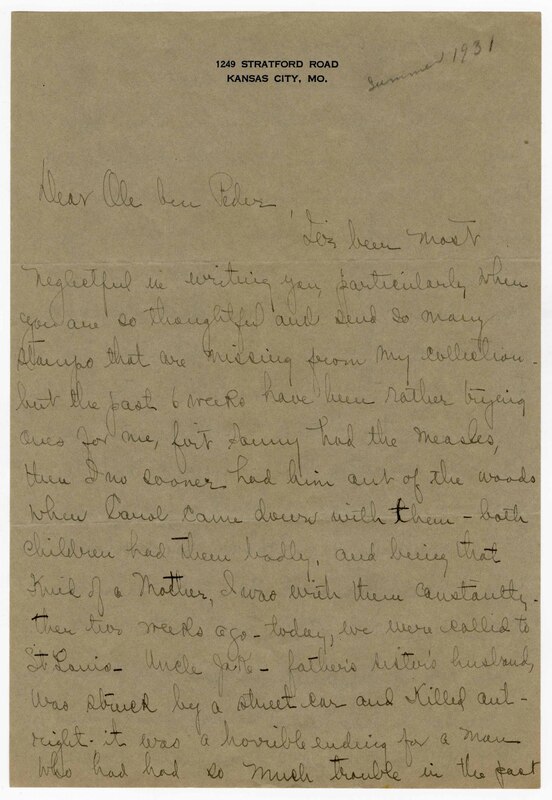 1249 STRATFORD ROAD
KANSAS CITY, MO.
Summer 1931
Dear Ole ben Peder,
I've been most
neglectful in writing you, particularly when
you are so thoughtful and send so many
stamps that are missing from my collection -
but the past 6 weeks have been rather trying
ones for me, first Sonny had the measles,
then I no sooner had him out of the woods
when Carol came down with them - both
children had them badly, and being that
kind of a Mother, I was with them constantly.
then two weeks ago - today, we were called to
St Louis - Uncle - father's sister's husband,
was struck by a street car and killed out-
right - it was a horrible ending for a man
who had had so much trouble in the past